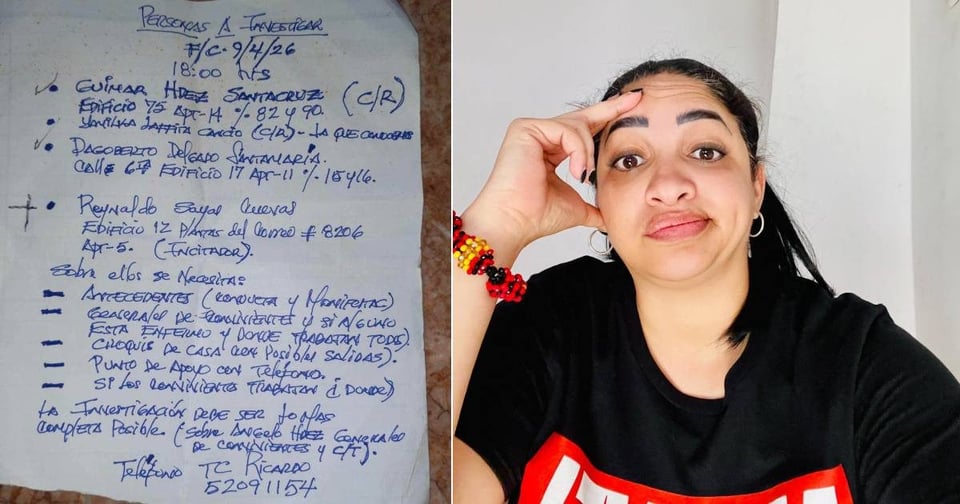 PERSONAS A INVESTIGAR
F/C. 9/4/26
18:00 hrs
GUIMAR HDEZ SANTACRUZ (C/R)
EDIFICIO 75 APT-14 % 82 Y 90.
(C/R) - LA QUE CONOCEMOS
DAGOBERTO DELGADO SANTAMARIA.
CALLE 6ta EDIFICIO 17 APT-11 % 15 Y 16.
Reynaldo Sayas Cuevas
EDIFICIO 12 PLANTAS del CORREO # 8206
APT-5. (INCITADOR).
Sobre ellos se Necesita:
ANTECEDENTES (CONDUCTA Y MANIFIESTAC)
GENERALES DE CONVIVIENTES Y SI ALGUNO
ESTA ENFERMO Y DONDE TRABAJAN TODOS).
CROQUIS DE CASA CON POSIBLES SALIDAS).
PUNTO DE APOYO CON TELÉFONO.
SI LOS CONVIVIENTES TRABAJAN (DONDE)
LA INVESTIGACIÓN DEBE SER LO MAS
COMPLETA POSIBLE. (SOBRE ANGELO HDEZ GENERALES
DE CONVIVIENTES Y C/T).
Teléfono TC RICARDO
52091154